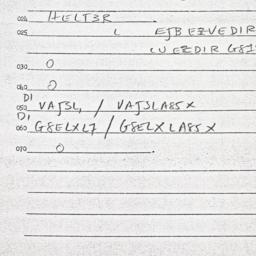 020 HELT3R
025 L EJB EZVEDIR
LU EZDIR G81
030 O
040 O
DI
050 VAJSL, / VAJSLA85X
DI
060 G8ELXL7 / G8ELXLA85X
070 O .